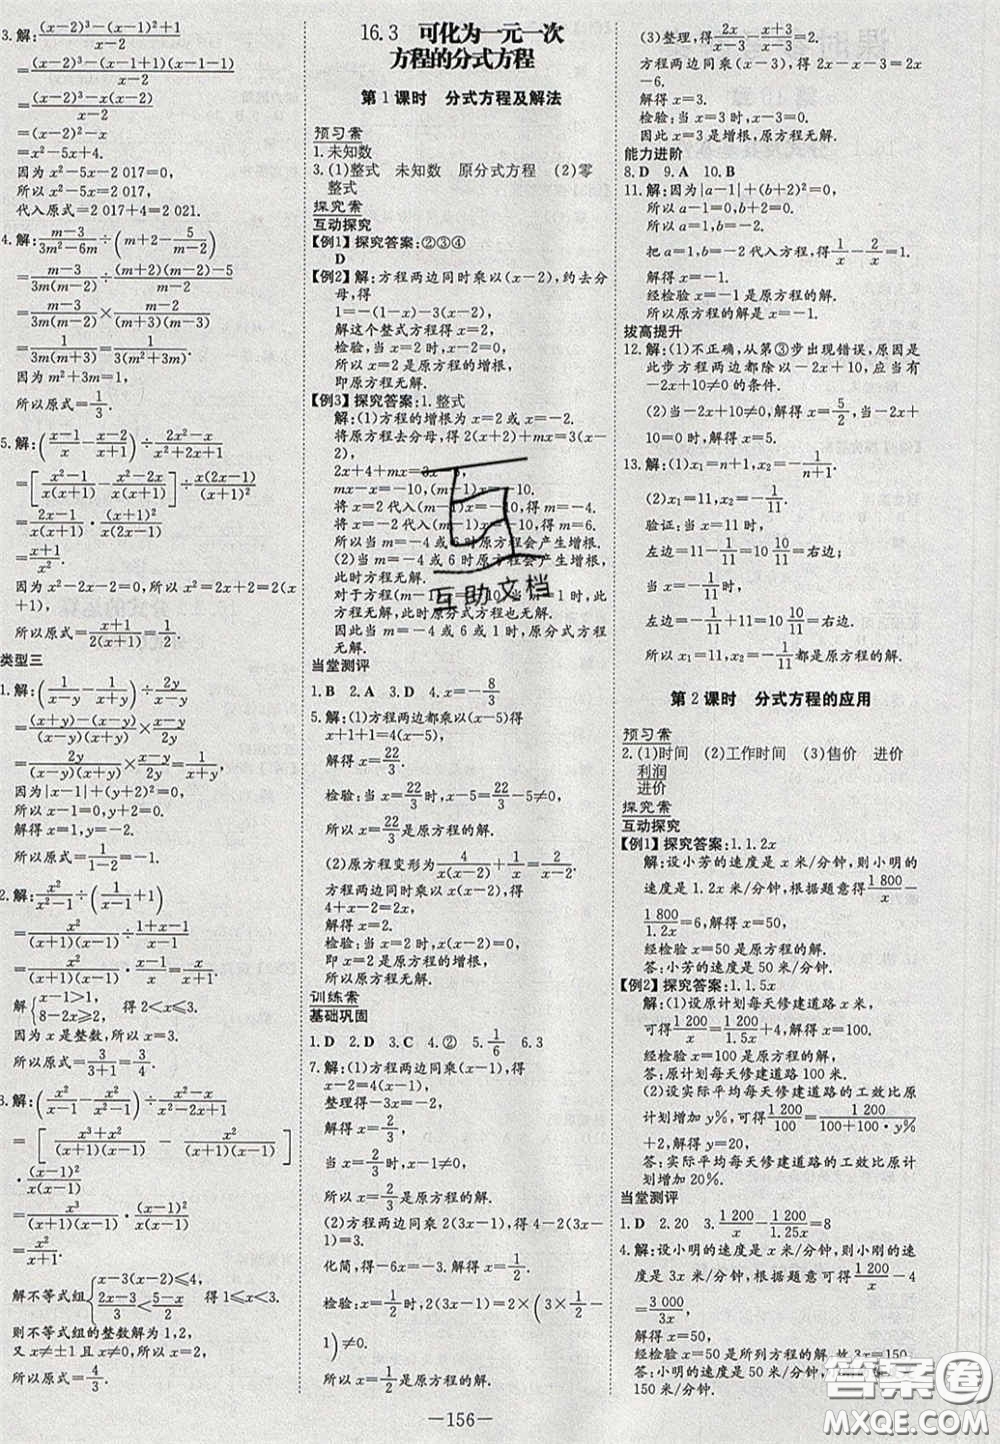 3.解:\frac{(x-2)^3-(x-1)^2+1}{x-2}
=\frac{(x-2)^3-(x-1+1)(x-1-1)}{x-2}
=\frac{(x-2)^3-x(x-2)}{x-2}
=(x-2)^2-x
=x^2-5x+4.
因为 x^2-5x-2 017=0,
所以 x^2-5x=2 017,
代入原式=2 017+4=2 021.
4.解:\frac{m-3}{3m^2-6m}÷(m+2-\frac{5}{m-2})
=\frac{m-3}{3m(m-2)}÷\frac{(m+2)(m-2)-5}{m-2}
=\frac{m-3}{3m(m-2)}×\frac{m-2}{(m+3)(m-3)}
=\frac{1}{3m(m+3)}=\frac{1}{3(m^2+3m)}.
因为 m^2+3m=1,
所以原式=\frac{1}{3}.
5.解:(\frac{x-1}{x}-\frac{x-2}{x+1})÷\frac{2x^2-x}{x^2+2x+1}
=[\frac{x^2-1}{x(x+1)}-\frac{x^2-2x}{x(x+1)}]÷\frac{x(2x-1)}{(x+1)^2}
=\frac{2x-1}{x(x+1)}·\frac{(x+1)^2}{x(2x-1)}
=\frac{x+1}{x^2}.
因为 x^2-2x-2=0,所以 x^2=2x+2=2(x+1),
所以原式=\frac{x+1}{2(x+1)}=\frac{1}{2}.
类型三
1.解:(\frac{1}{x-y}-\frac{1}{x+y})÷\frac{2y}{x-y}
=\frac{(x+y)-(x-y)}{(x-y)(x+y)}×\frac{x-y}{2y}
=\frac{2y}{(x-y)(x+y)}×\frac{x-y}{2y}=\frac{1}{x+y},
因为|x-1|+(y+2)^2=0,
所以 x-1=0,y+2=0,
解得 x=1,y=-2.
所以原式=\frac{1}{1-2}=-1.
2.解:\frac{x^2}{x^2-1}÷(\frac{1}{x-1}+1)
=\frac{x^2}{(x+1)(x-1)}÷\frac{1+x-1}{x-1}
=\frac{x^2}{(x+1)(x-1)}·\frac{x-1}{x}=\frac{x}{x+1}.
解{x-1>1, 8-2x≥2, 得 2<x≤3.
因为 x 是整数,所以 x=3.
所以原式=\frac{3}{3+1}=\frac{3}{4}.
3.解:(\frac{x^2}{x-1}-\frac{x^2}{x^2-1})÷\frac{x^2-x}{x^2-2x+1}
=[\frac{x^3+x^2}{(x+1)(x-1)}-\frac{x^2}{(x+1)(x-1)}]
·\frac{(x-1)^2}{x(x-1)}
=\frac{x^3}{(x+1)(x-1)}·\frac{x-1}{x}
=\frac{x^2}{x+1}.
解不等式组{x-3(x-2)≤4, \frac{2x-3}{3}<\frac{5-x}{2} 得 1≤x<3.
则不等式组的整数解为 1,2,
又 x≠±1 且 x≠0,所以 x=2,
所以原式=\frac{4}{3}.
16.3 可化为一元一次
方程的分式方程
第1课时 分式方程及解法
预习案
1.未知数
3.(1)整式 未知数 原分式方程 (2)零
整式
探究案
互动探究
【例1】探究答案:②③④
D
【例2】解:方程两边同时乘以(x-2),约去分
母,得
1=-(1-x)-3(x-2),
解这个整式方程得 x=2,
检验,当 x=2 时,x-2=0,
所以 x=2 是原方程的增根,
即原方程无解.
【例3】探究答案:1.整式
解:(1)方程的增根为 x=2 或 x=-2.
将原方程去分母,得 2(x+2)+mx=3(x-
2),
2x+4+mx=3x-6,
mx-x=-10,(m-1)x=-10.
将 x=2 代入(m-1)x=-10,得 m=-4.
将 x=-2 代入(m-1)x=-10,得 m=6.
所以当 m=-4 或 6 时原方程会产生增根.
(2)当 m=-4 或 6 时原方程会产生增根,
此时方程无解.
对于方程(m-1)x=-10,当 m=1 时,
此方程无解,原分式方程也无解.
因此当 m=-4 或 6 或 1 时,原分式方程
无解.
当堂测评
1.B 2.A 3.D 4.x=-\frac{8}{3}
5.解:(1)方程两边都乘以(x-5)得
x+1+1=4(x-5),
解得 x=\frac{22}{3},
检验:当 x=\frac{22}{3}时,x-5=\frac{22}{3}-5≠0,
所以 x=\frac{22}{3}是原方程的解.
(2)原方程变形为\frac{4}{x(x-2)}+\frac{1}{x}=\frac{2}{x(x-2)}
方程两边同乘以 x(x-2)得
4+x-2=2x,
解得 x=2.
检验:当 x=2 时,x(x-2)=0,
即 x=2 是原方程的增根,
所以原方程无解.
训练案
基础巩固
1.D 2.B 3.C 4.② 5.\frac{1}{6} 6.3
7.解:(1)方程两边同乘(x-1),得
x-2=4(x-1),
整理得-3x=-2,
解得 x=\frac{2}{3},
检验:当 x=\frac{2}{3}时,x-1≠0,
所以 x=\frac{2}{3}是原方程的解.
(2)方程两边同乘 2(3x-1),得 4-2(3x-1)=3,
化简,得-6x=-3,解得 x=\frac{1}{2}.
检验:x=\frac{1}{2}时,2(3x-1)=2×(3×\frac{1}{2}-
1)≠0.
所以 x=\frac{1}{2}是原方程的解.
(3)整理,得\frac{2x}{x-3}-\frac{x}{x-3}=\frac{6}{x-3},
方程两边同乘(x-3),得 2x-x-3=2x-
6.
解得 x=3.
检验:当 x=3 时,x-3=0,
因此 x=3 是增根,原方程无解.
能力进阶
8.D 9.A 10.B
11.解:因为|a-1|+(b+2)^2=0,
所以 a-1=0,b+2=0.
所以 a=1,b=-2.
把 a=1,b=-2 代入方程,得\frac{1}{x}-\frac{2}{x-1}=0.
解得 x=-1.
经检验 x=-1 是原方程的解.
所以原方程的解为 x=-1.
拔高提升
12.解:(1)不正确,从第③步出现错误,原因是
此步方程两边都除以-2x+10,应当有
-2x+10≠0 的条件.
(2)当-2x+10=0,解得 x=\frac{5}{2},当-2x+
10=0 时,方程无解.
13.解:(1)x_1=n+1,x_2=-\frac{1}{n+1}.
(2)x_1=11,x_2=-\frac{1}{11}.
验证:当 x=11 时,
左边=11-\frac{1}{11}=10\frac{10}{11}=右边;
当 x=-\frac{1}{11}时,
左边=-\frac{1}{11}+11=10\frac{10}{11}=右边.
所以 x_1=11,x_2=-\frac{1}{11}都是原方程的解.
第2课时 分式方程的应用
预习案
2.(1)时间 (2)工作时间 (3)售价 进价
\frac{利润}{进价}
探究案
互动探究
【例1】探究答案:1.1.2x
解:设小芳的速度是 x 米/分钟,则小明的
速度是 1.2x 米/分钟,根据题意得\frac{1 800}{x}-
\frac{1 800}{1.2x}=6,解得 x=50,
经检验 x=50 是原方程的解.
答:小芳的速度是 50 米/分钟.
【例2】探究答案:1.1.5x
解:(1)设原计划每天修建道路 x 米,
可得\frac{1 200}{x}=\frac{1 200}{1.5x}+4,解得 x=100,
经检验 x=100 是原方程的解.
答:原计划每天修建道路 100 米.
(2)设实际平均每天修建道路的工效比原
计划增加 y%,可得\frac{1 200}{100}=\frac{1 200}{100+100y%}
+2,解得 y=20,
经检验 y=20 是原方程的解.
答:实际平均每天修建道路的工效比原计划
增加 20%.
当堂测评
1.D 2.20 3.\frac{1 200}{x}-\frac{1 200}{1.25x}=8
4.解:设小明的速度是 x 米/分钟,则小刚的速
度是 3x 米/分钟,根据题意可得\frac{1 200}{x}-4
=\frac{3 000}{3x},
解得 x=50,
经检验 x=50 是所列方程的解.故3x=150.
答:小明的速度是
150 米/分钟.
—156—
互助文档
答案圈
MXQE.COM